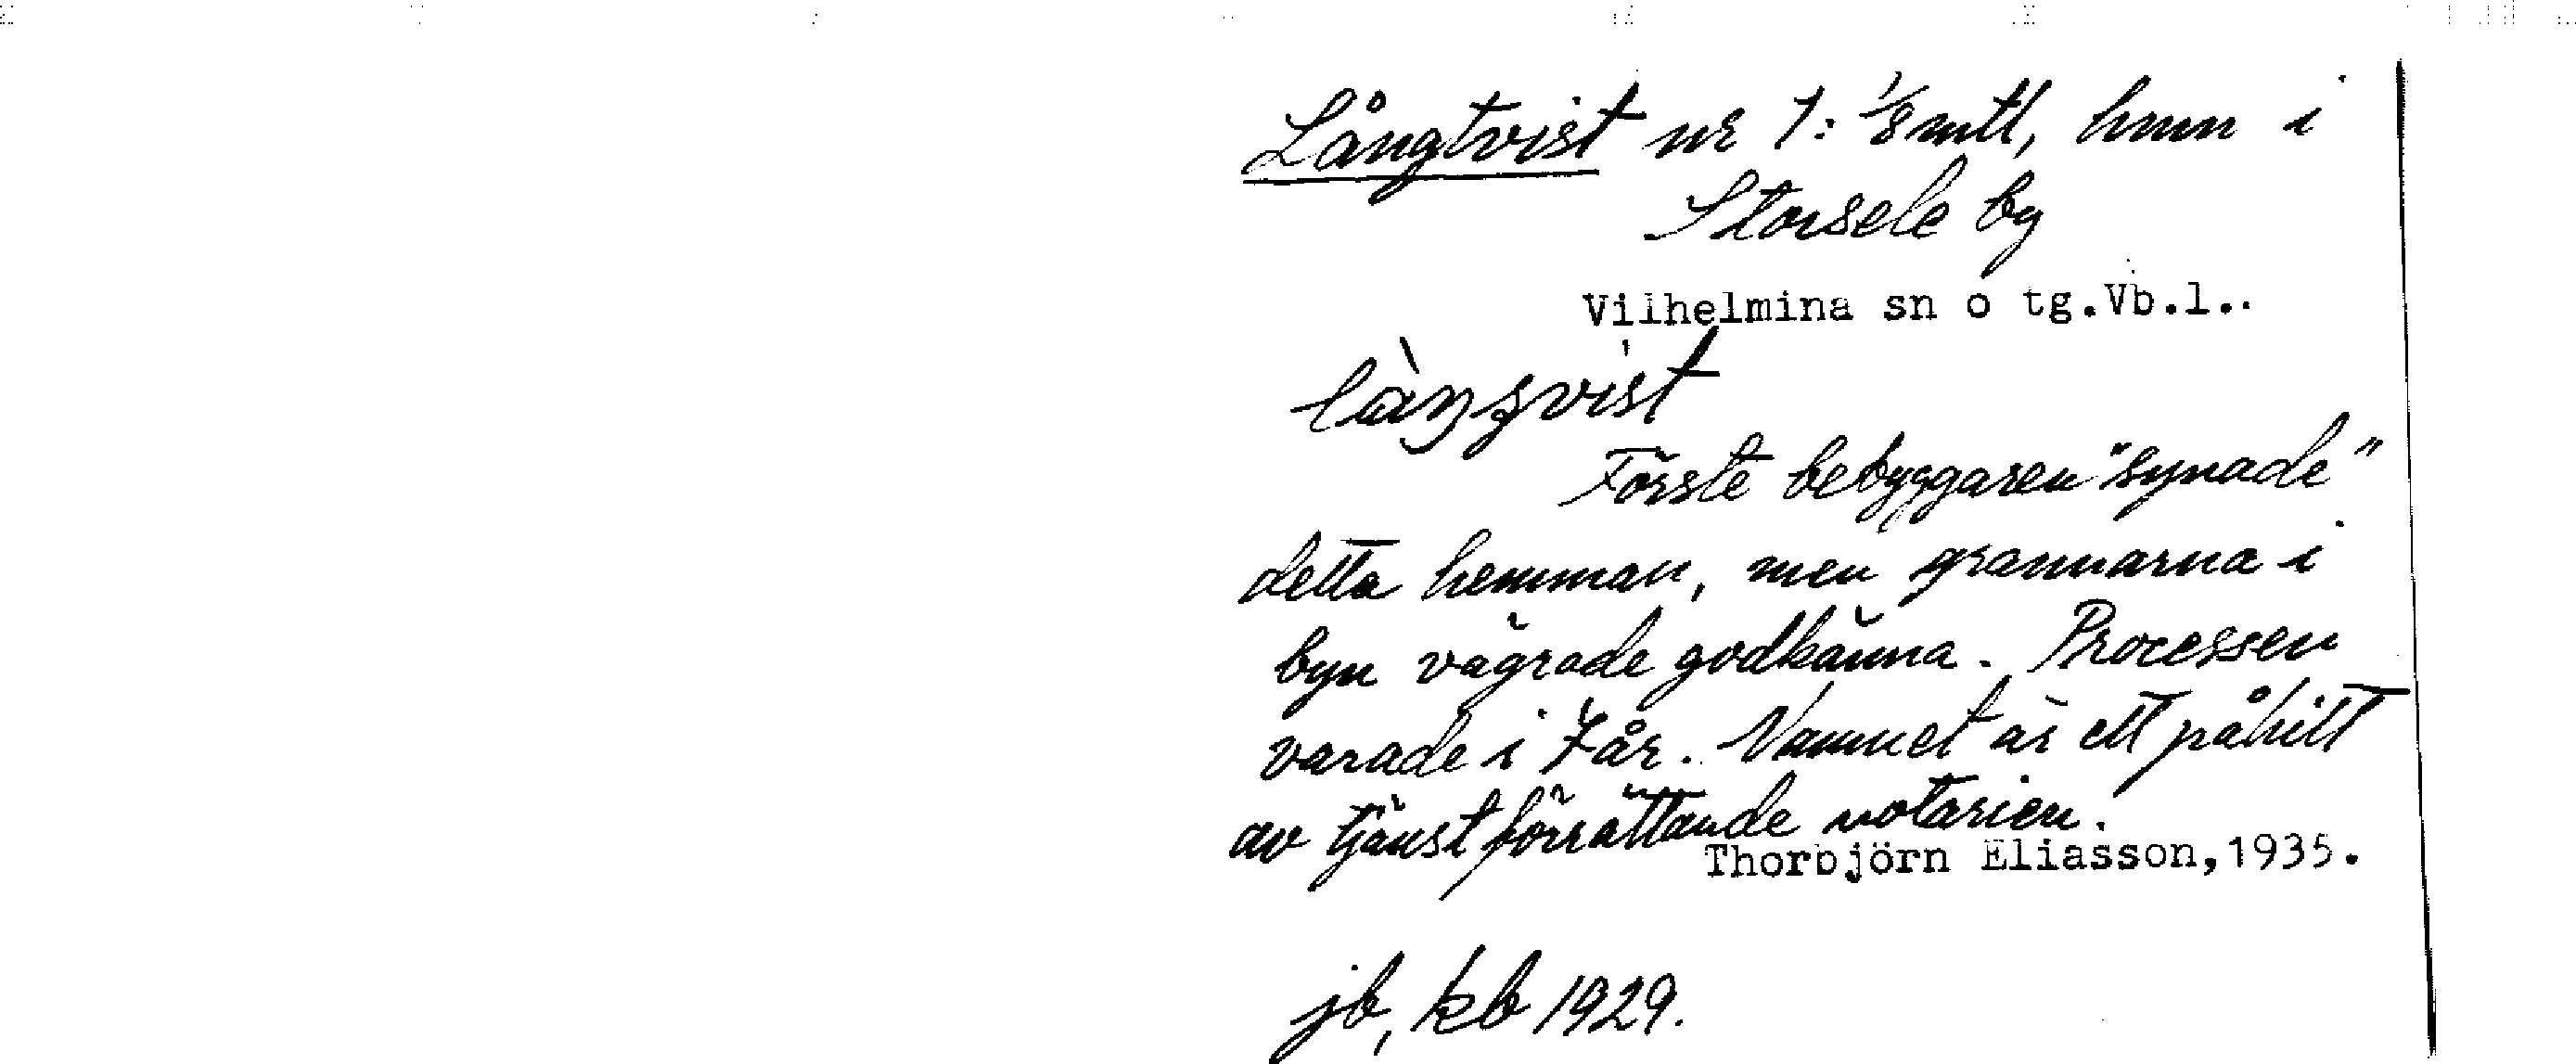 Långtvist nr 1: 1/8 mtl, hmn i
Storsele by
Vilhelmina sn o tg.Vb.l..
Förste bebyggaren "synade"
detta hemman, men grannarna i
byn vägrade godkänna. Processen
varade i 7 år. Namnet är ett påhitt
av tjänstförrättande notarien.
Thorbjörn Eliasson,1935.
jb, kb 1929.